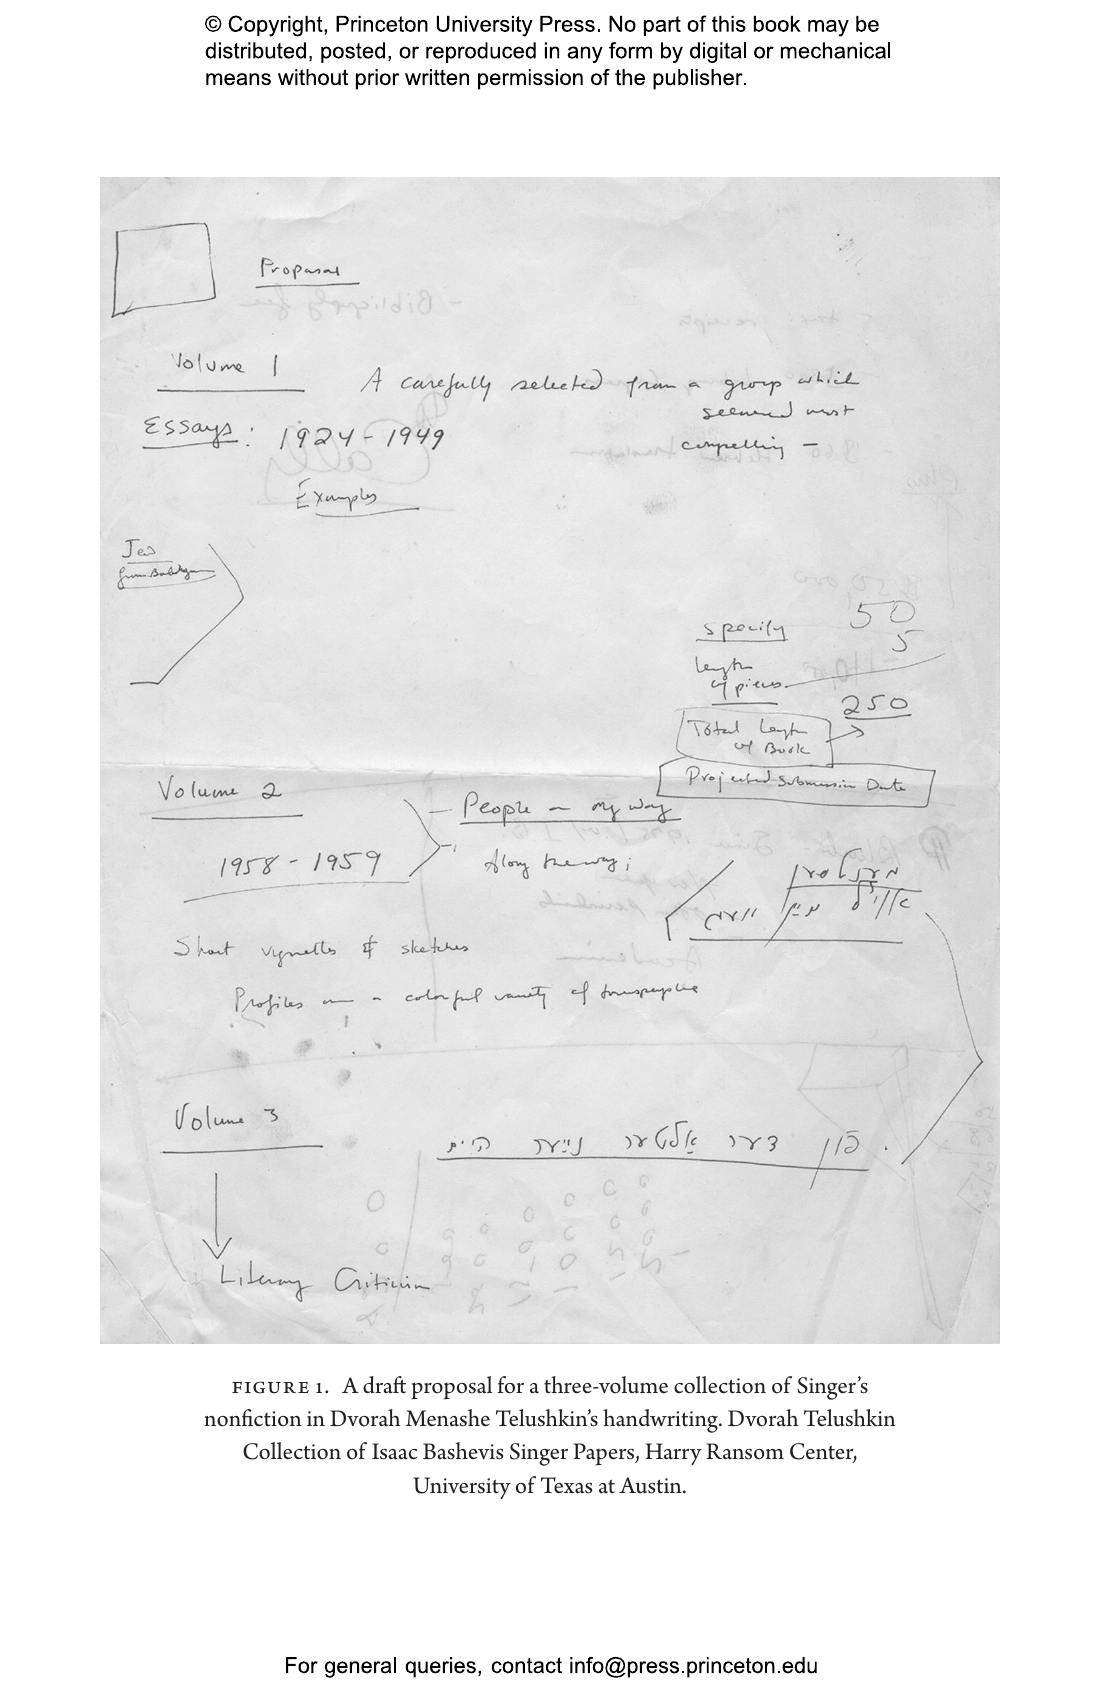 © Copyright, Princeton University Press. No part of this book may be
distributed, posted, or reproduced in any form by digital or mechanical
means without prior written permission of the publisher.
Proposal
Volume 1
A carefully selected from a group which
seemed most
compelling –
Essays: 1924-1949
Examples
Jew
from
specify
50
5
length
of pieces
250
Total Length
of Book
Projected Submission Date
Volume 2
– People on my way
1958-1959
Along the way;
מענטשן
אויף מיין וועג
Short vignettes & sketches
Profiles on a colorful variety of
Volume 3
פֿון דער אַלטער נײַער היים
Literary Criticism
FIGURE 1. A draft proposal for a three-volume collection of Singer’s
nonfiction in Dvorah Menashe Telushkin’s handwriting. Dvorah Telushkin
Collection of Isaac Bashevis Singer Papers, Harry Ransom Center,
University of Texas at Austin.
For general queries, contact info@press.princeton.edu